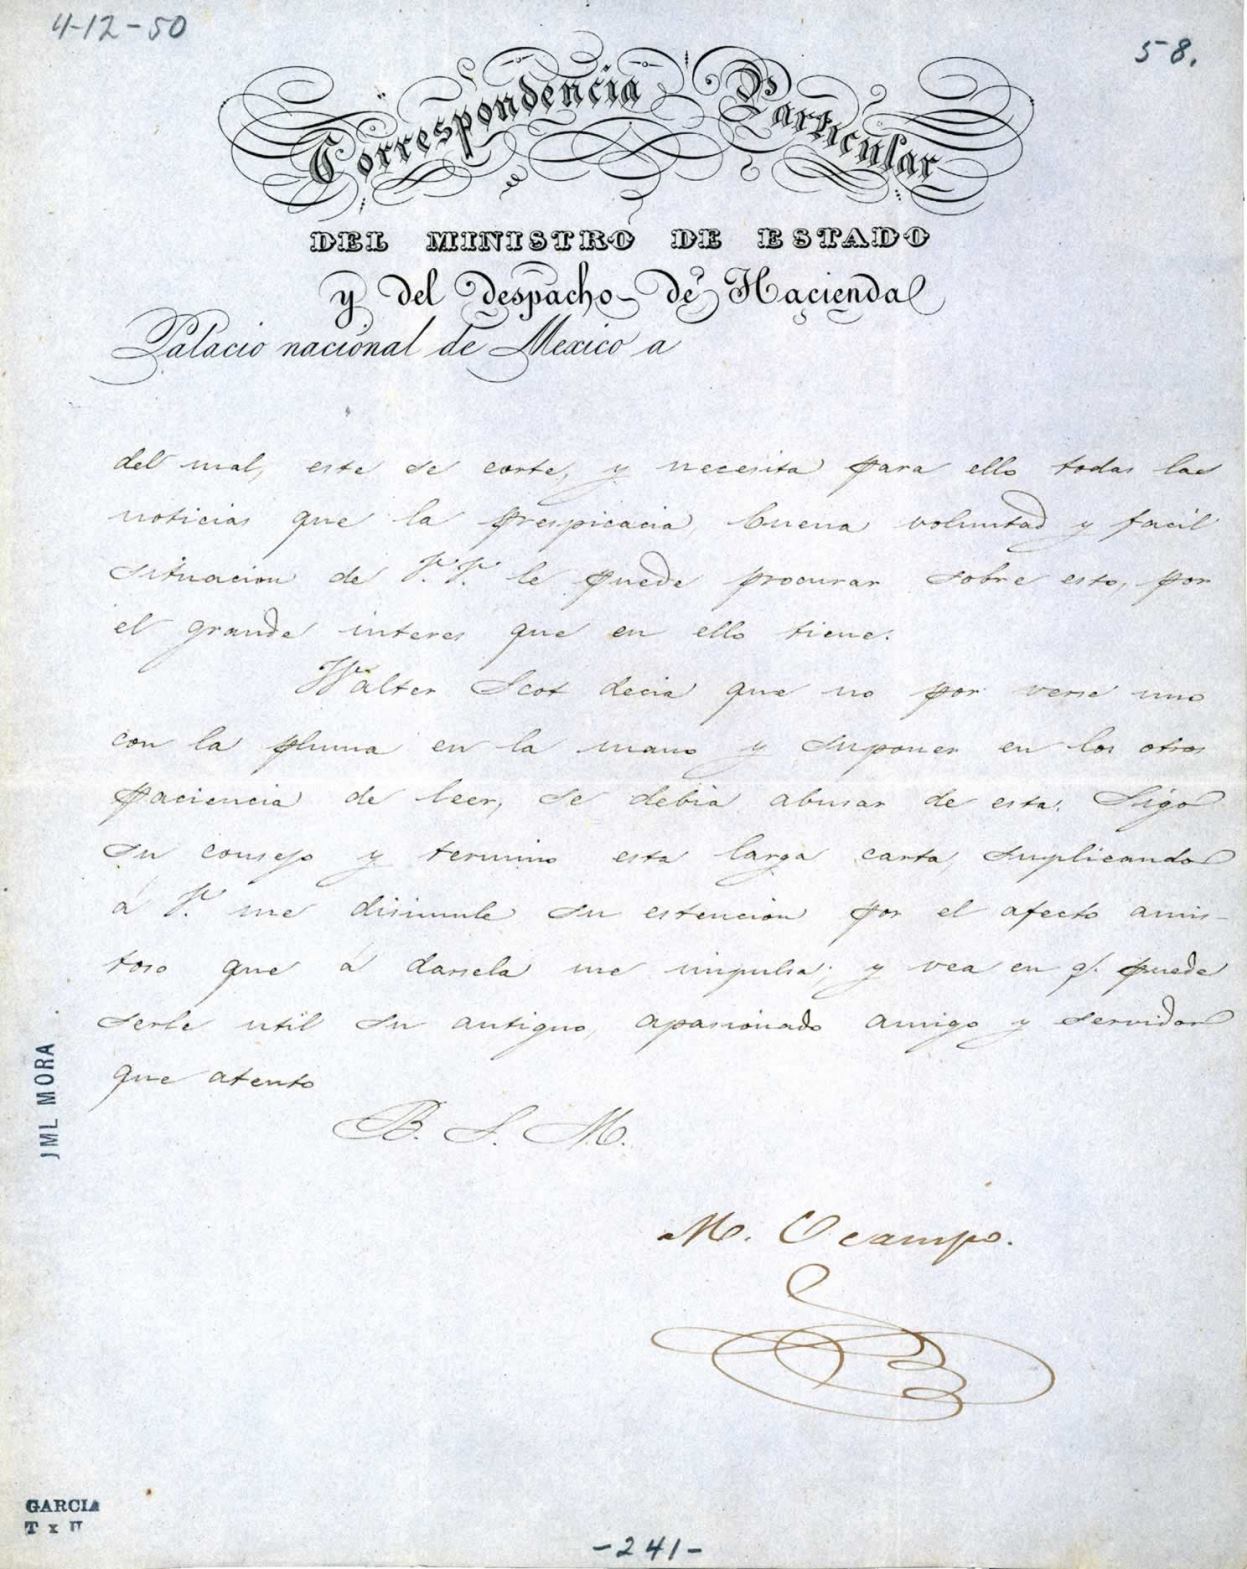 4-12-50
58.
Correspondencia Particular
DEL MINISTRO DE ESTADO
y del Despacho de Hacienda
Palacio nacional de Mexico a
del mal, este se corte, y necesita para ello todas las
noticias que la prespicacia, buena voluntad y facil
situacion de V.V. le puede procurar sobre esto, por
el grande interes que en ello tiene.
Walter Scot decia que no por verse uno
con la pluma en la mano y suponer en los otros
paciencia de leer, se debia abusar de esta. Sigo
su consejo y termino esta larga carta, suplicando
á V. me disimule su estencion por el afecto amis-
toso que á darsela me impulsa; y vea en q. puede
serle util su antiguo, apasionado amigo y servidor
que atento
B. S. M.
M. Ocampo.
JML MORA
GARCIA
T x U
-241-